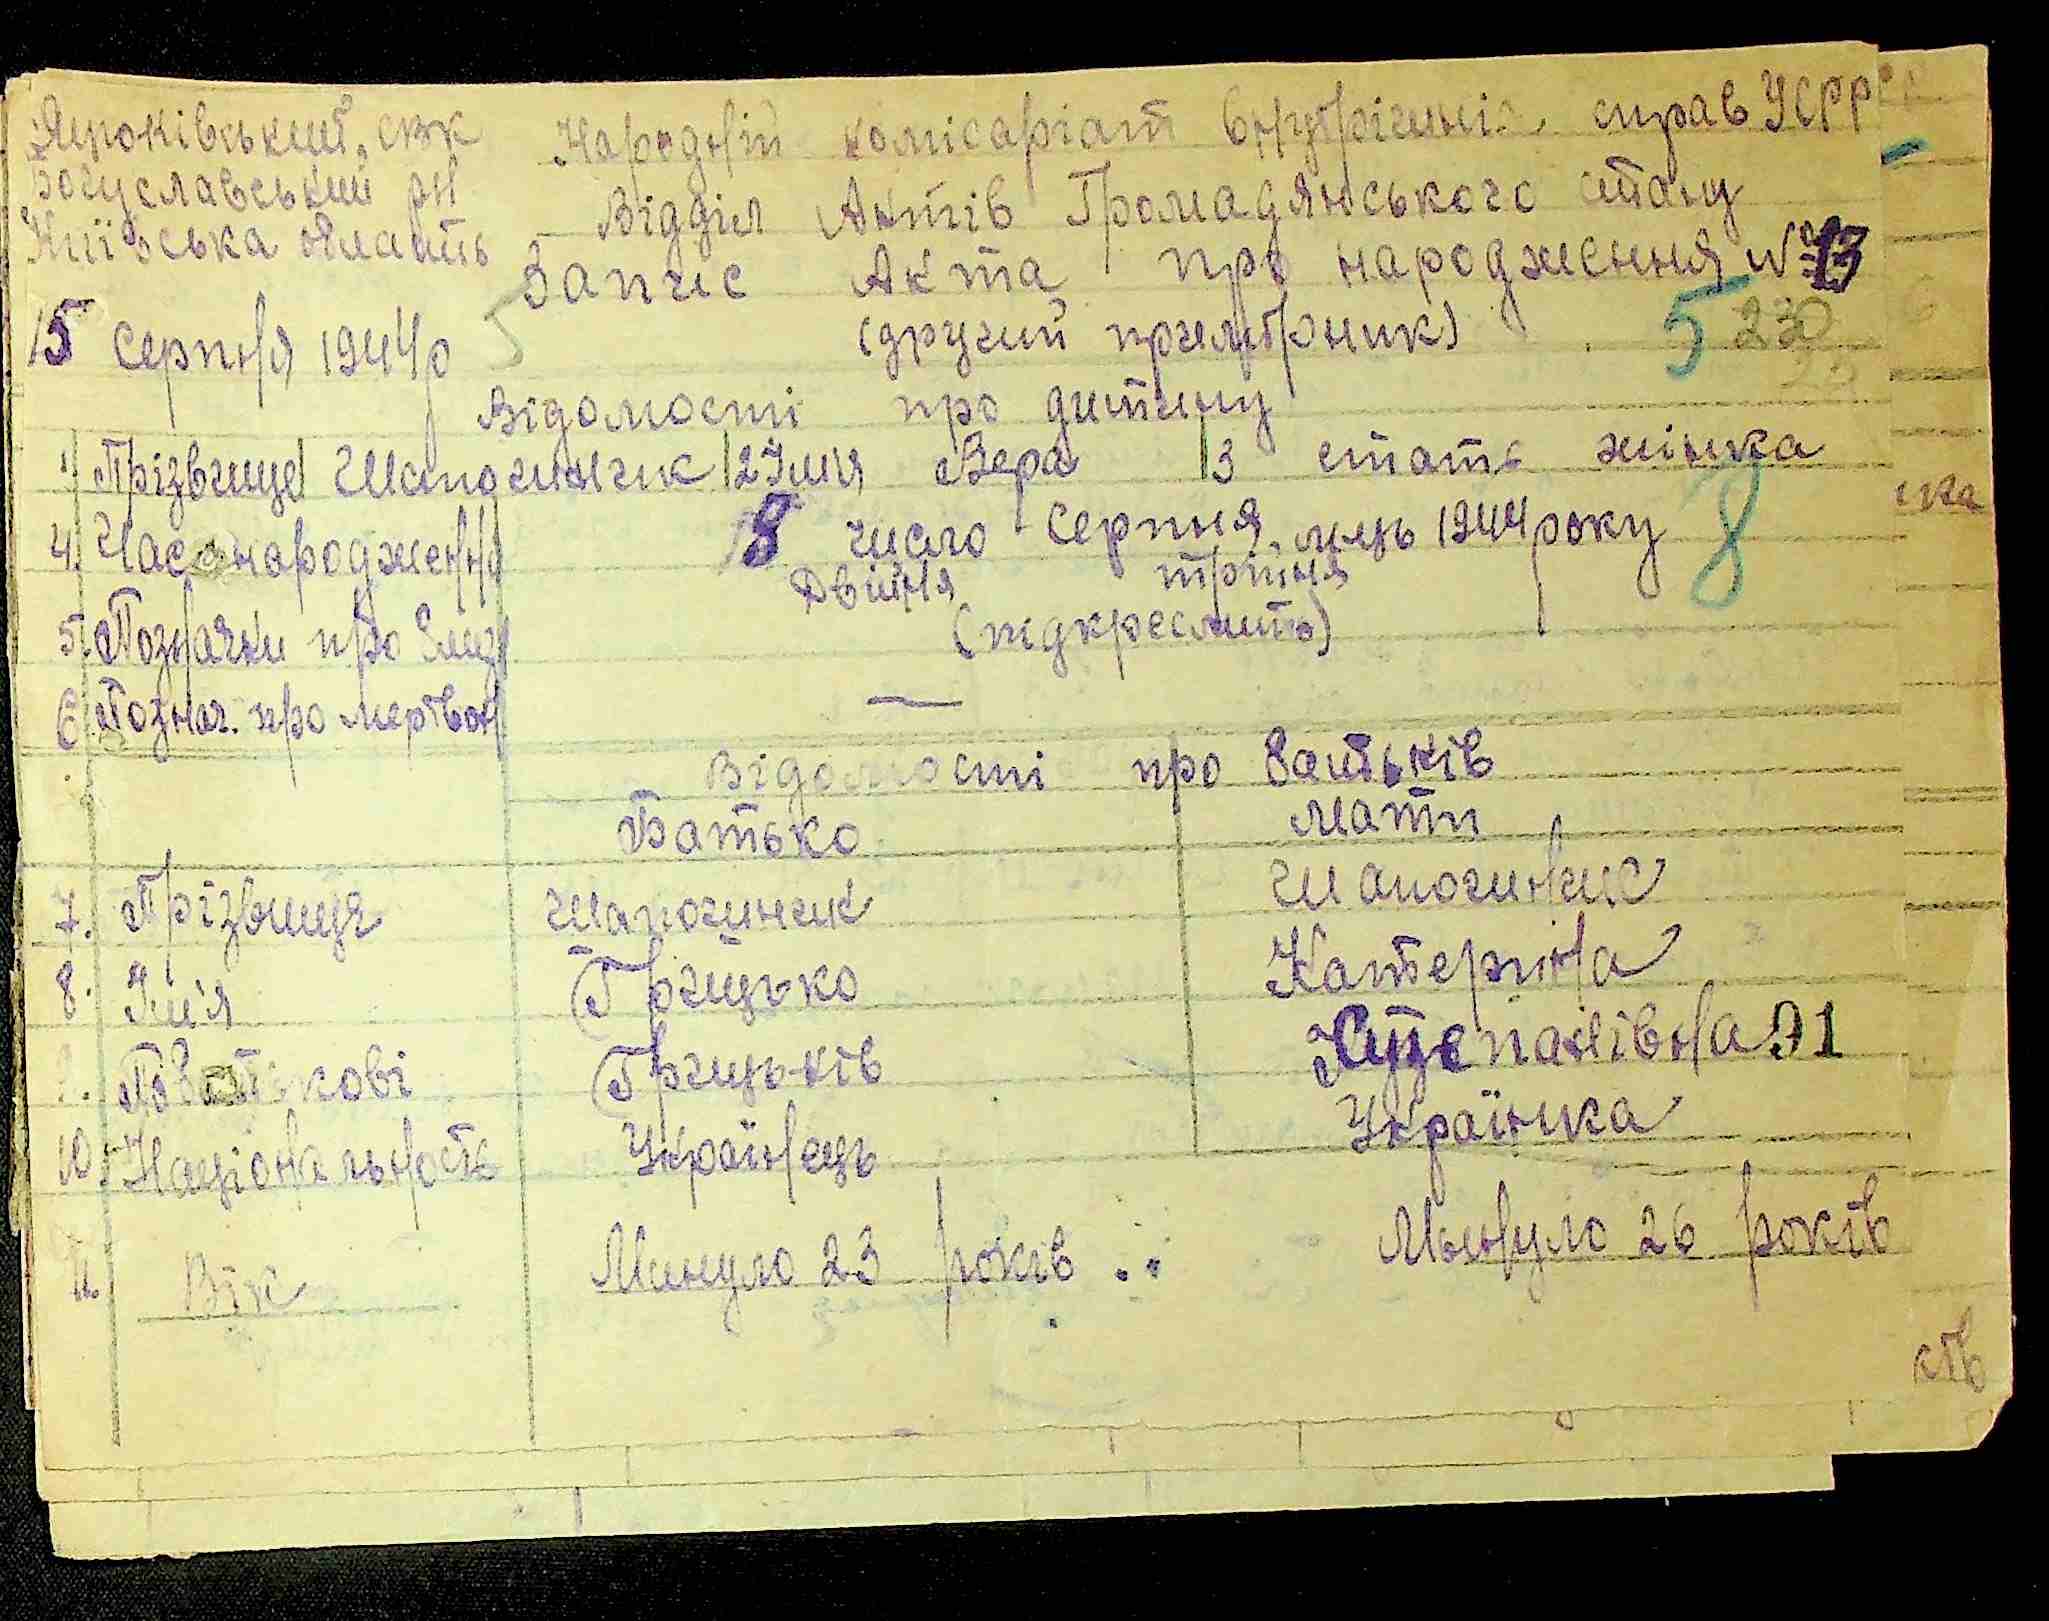 Народній комісаріат внутрішніх справ УСРР
Богуславський рн
Київська область
Відділ Актів Громадянського стану
Запис Акта про народження №13
15 Серпня 1944р
(другий примірник)
5 230
Відомості про дитину
1 Прізвище Шапочиник 2 Імія Вера 3 стать жінка
4. Час народження 8 число Серпня м-ць 1944 року
8
двійня трійня
5. Позначки про близ (підкреслить)
6. Познач. про мертвон —
Відомості про батьків
Батько Мати
7. Прізвище Шапочиник Шапочиник
8. Імія Грицько Катерина
9. По батькові Грицьків
10. Національность Українець Українка
11. Вік Минуло 23 років Минуло 26 років